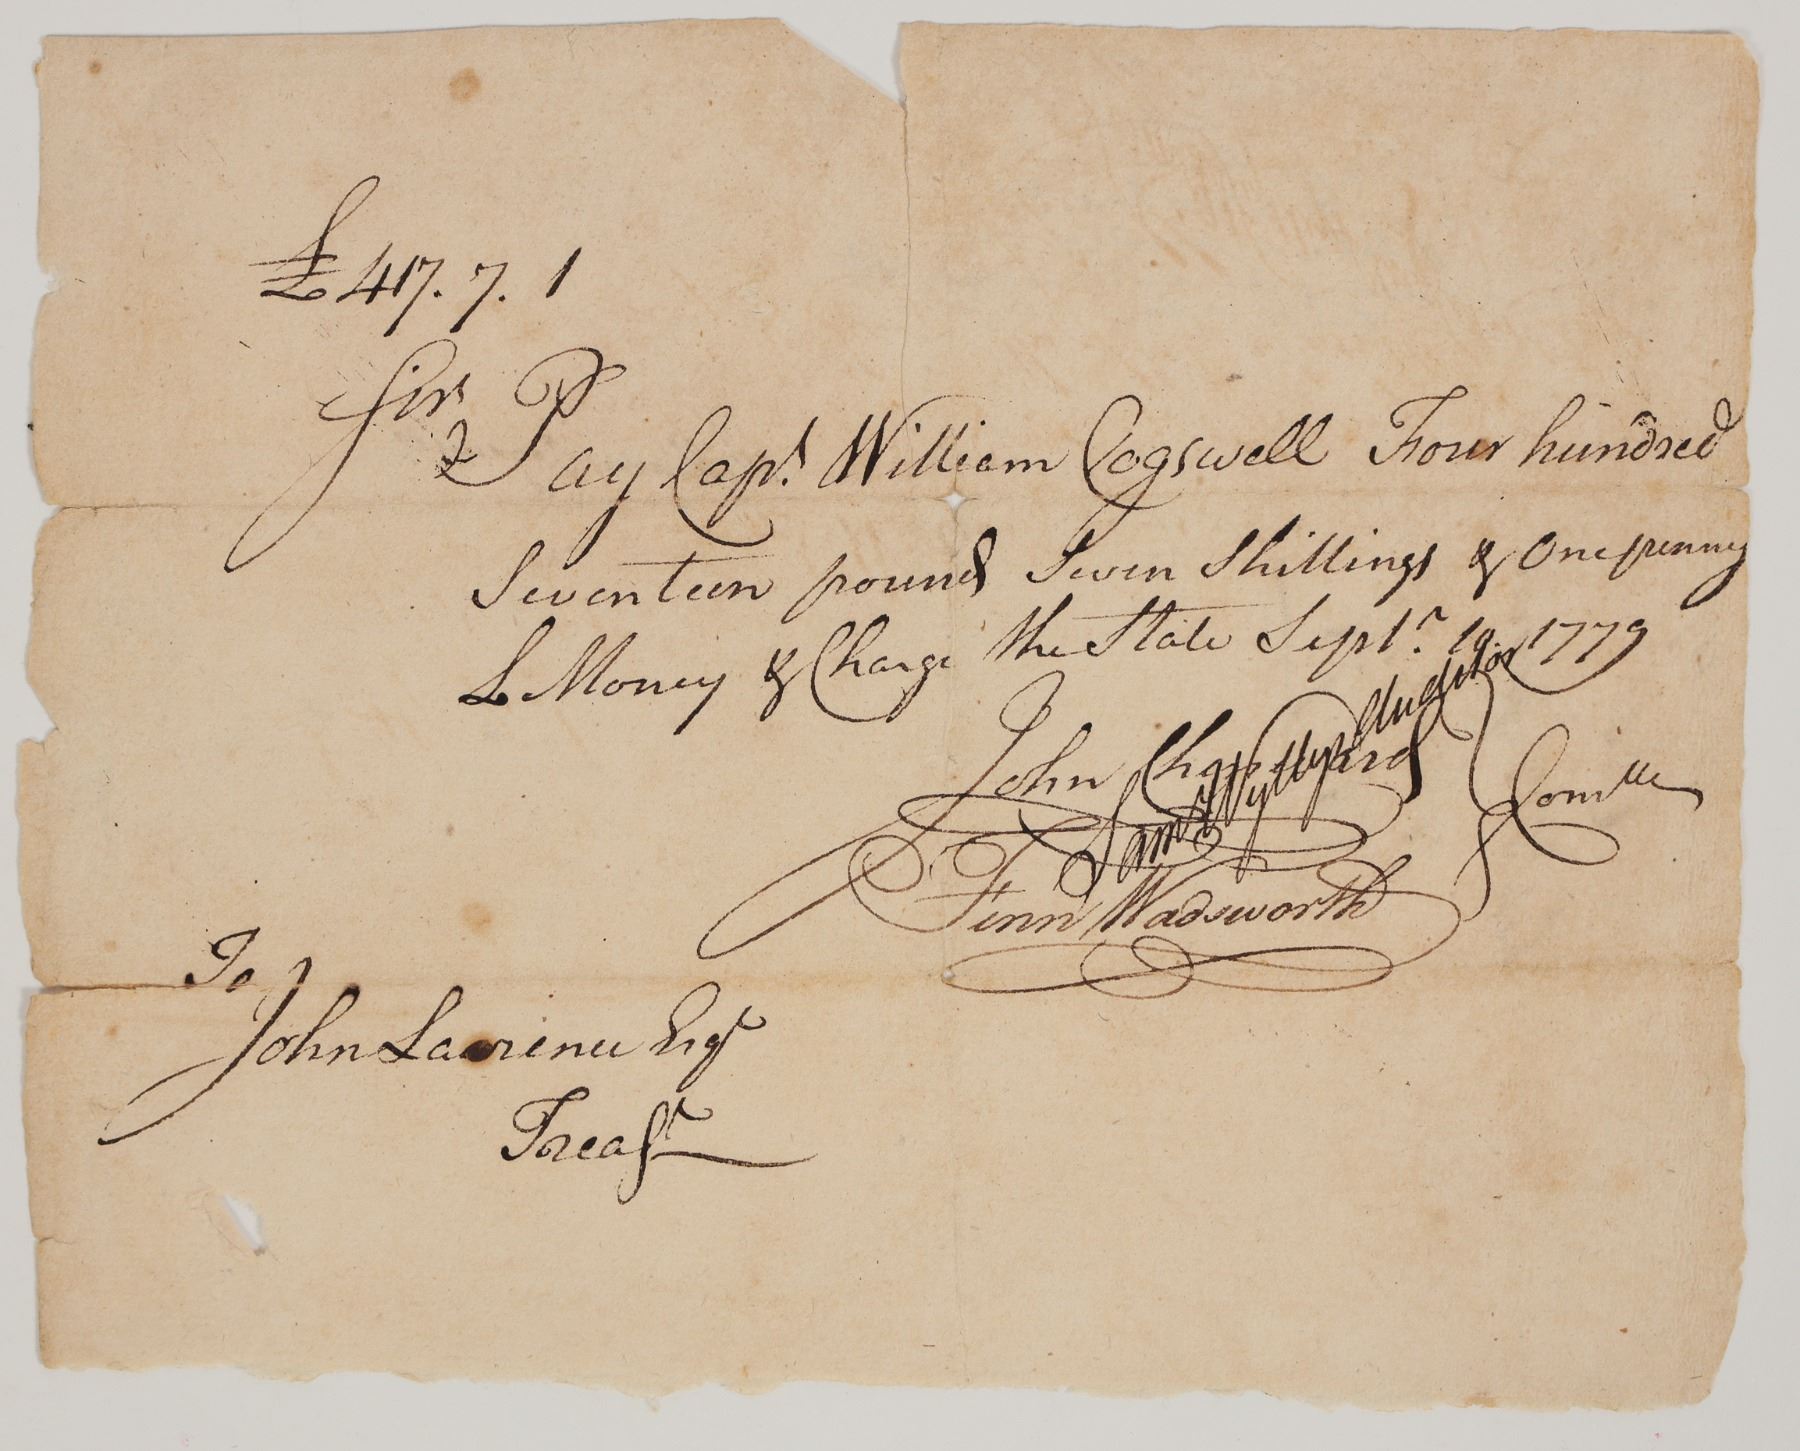 £ 417. 7. 1
Sir
Pay Capt. William Cogswell Four hundred
Seventeen pounds Seven Shillings & One penny
L Money & Charge the State Septr. 1779
John Chenward
Saml Wyllys Auditor
Fenn Wadsworth
Comtte
To
John Lawrence Esqr
Treasr